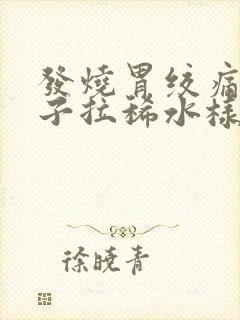 發燒胃绞痛
子拉稀水樣
徐曉青